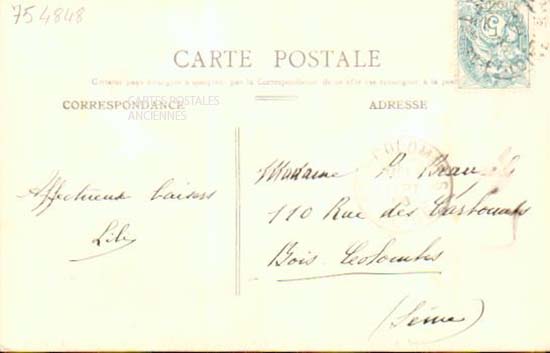 754848
5
CARTE POSTALE
CORRESPONDANCE
ADRESSE
CARTES POSTALES
ANCIENNES
Affectueux baisers
Lili
Madame
110 Rue des
Bois Colombes
(Seine)